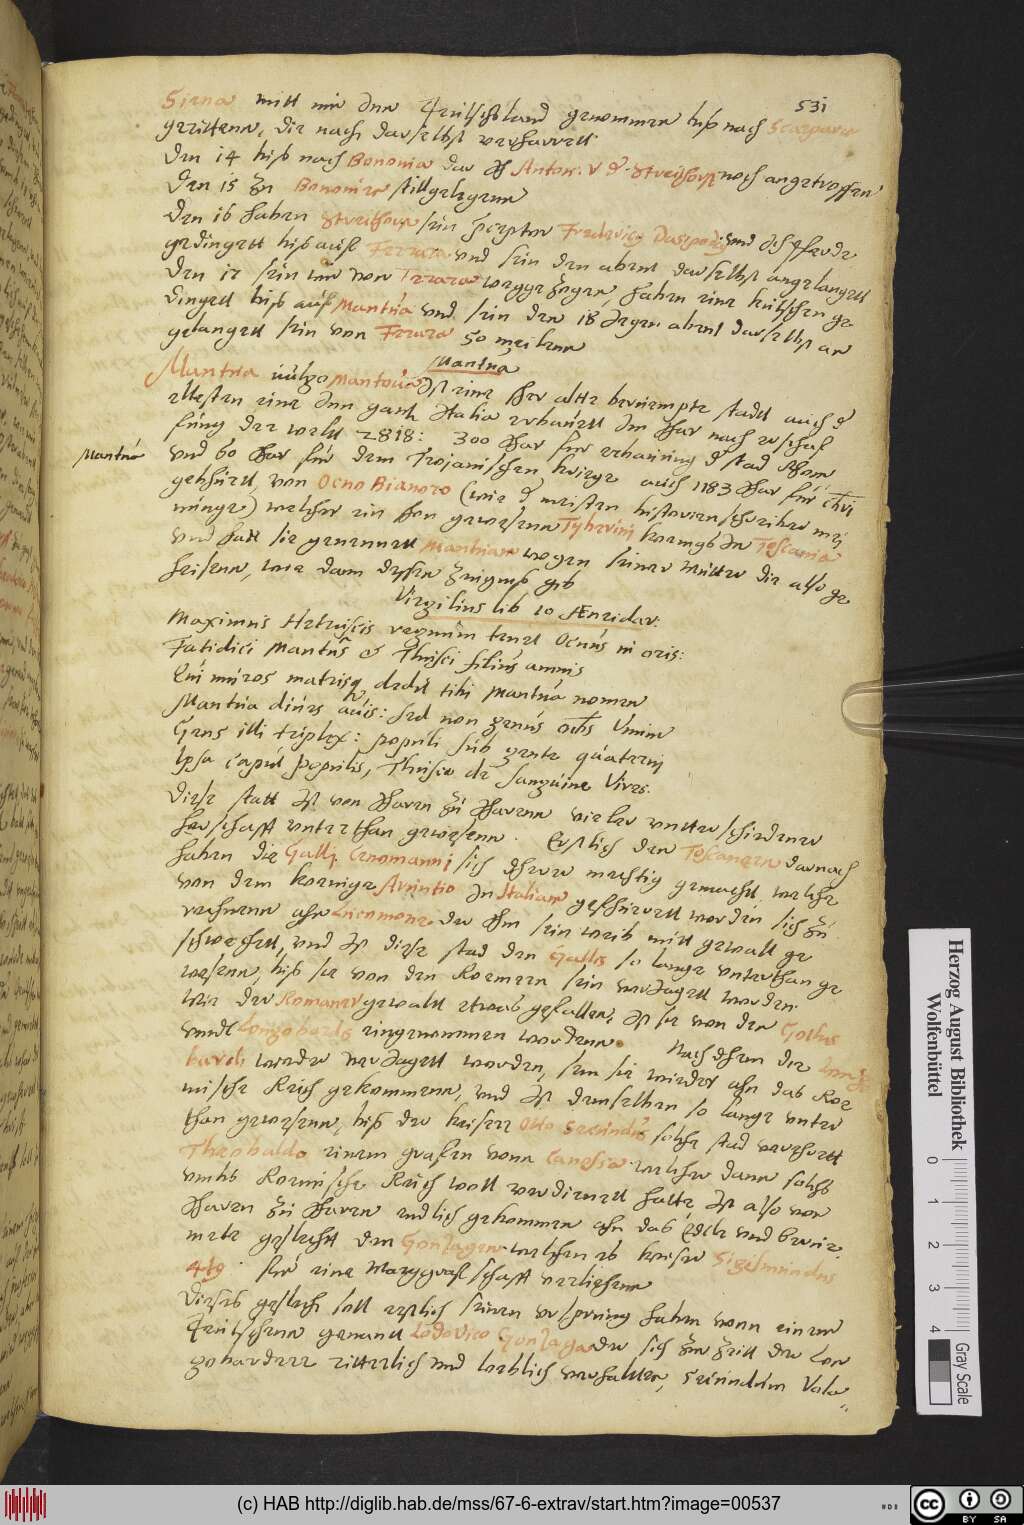 531
Siena mitt mir inn Teutschland genommen biß nach Scarparia
geritten, die nacht daselbst verharrett
Den 14 biß nach Bononia dar H Anton. V d. Streithorst noch angetroffen
Den 15 zu Bononiae still gelegenn
Den 16 haben Streithorst sein præceptor Fredericus und Ich Pferde
gedingett biß auff Ferrara und sein den abent daselbst angelangett
Den 17 sein wir von Ferrara weggezogen, haben eine kutschen ge
dingett biß auff Mantua und sein den 18 gegen abent daselbst an
gelangett sein von Ferrara 50 meilenn
Mantua
Mantua vulgo Mantoua Ist eine sher alte beruempte stadt auch d
eltesten eine Inn gantz Italia erbauett Im Jhar nach erschaf
fung der weltt 2818: 300 Jhar fur erbauung d stad Rhom
Mantua
und 60 Jhar für dem Trojanischen kriege auch 1183 Jhar für Chri
gebhürtt, von Ocno Bianoro (wie d meisten historienschreiber mei
nunge) welcher ein shon gewesenn Tyberini koenigs In Toscania
und hatt sie genennett Manthuam wegen seiner Mutter die also ge
heissenn, wie dann dessen zeugnuß gib
Virgilius lib 10 Æneidar:
Maximus Hetruscis regnum tenet Ocnus in oris:
Fatidici Mantus & Thusci filius amnis
Qui muros matrisq dedit tibi Mantua nomen
Mantua diues auis: sed non genus Unum
Gens illi triplex: populi sub gente quaterni
Ipsa caput populis, Thusco de sanguine Vires.
Diese statt Ist von Jharen zu Jharenn vieler unterschiedener
herschafft unterthan gewesenn. Erstlich den Toscanern darnach
haben die Galli Cenomanni sich Ihrer mechtig gemacht, welche
von dem koenige Aruntio In Italiam gefhürett worden sich zu
rechenn ahn Lucomone der Ihm sein weib mitt gewalt ge
schwechett, und Ist diese stad den Gallis so lange unterthan ge
wesenn, biß sie von den Roemern sein verJagett worden.
Wie der Romaner gewaltt etwas gefallen, Ist sie von den Gothis
undt Longobardis eingenommen wordenn. Nachdehm die Longo
bardi wieder verJagett worden, sein sie wieder ahn das Roe
mische Reich gekommenn, und Ist demselben so lange unter
than gewesenn, biß der keiser Otto Secundus solche stad verehrett
Theobaldo einem graffen vonn Canossa welcher dann solchs
umbs Roemische Reich woll verdienett hatte, Ist also von
Jharen zu Jharen endlich gekommen ahn das Edle und berue.
mete geschlecht den Gonzagen welchen es keiser Sigismundus
419 für eine Marggraffschafft verliehenn
Dieses geslecht soll erstlich seinen ursprung haben vonn einem
Teutschenn genant Lodovico Gonzaga der sich zur zeitt der Lon
gobarderr ritterlich und loeblich verhalten, secundum Vola